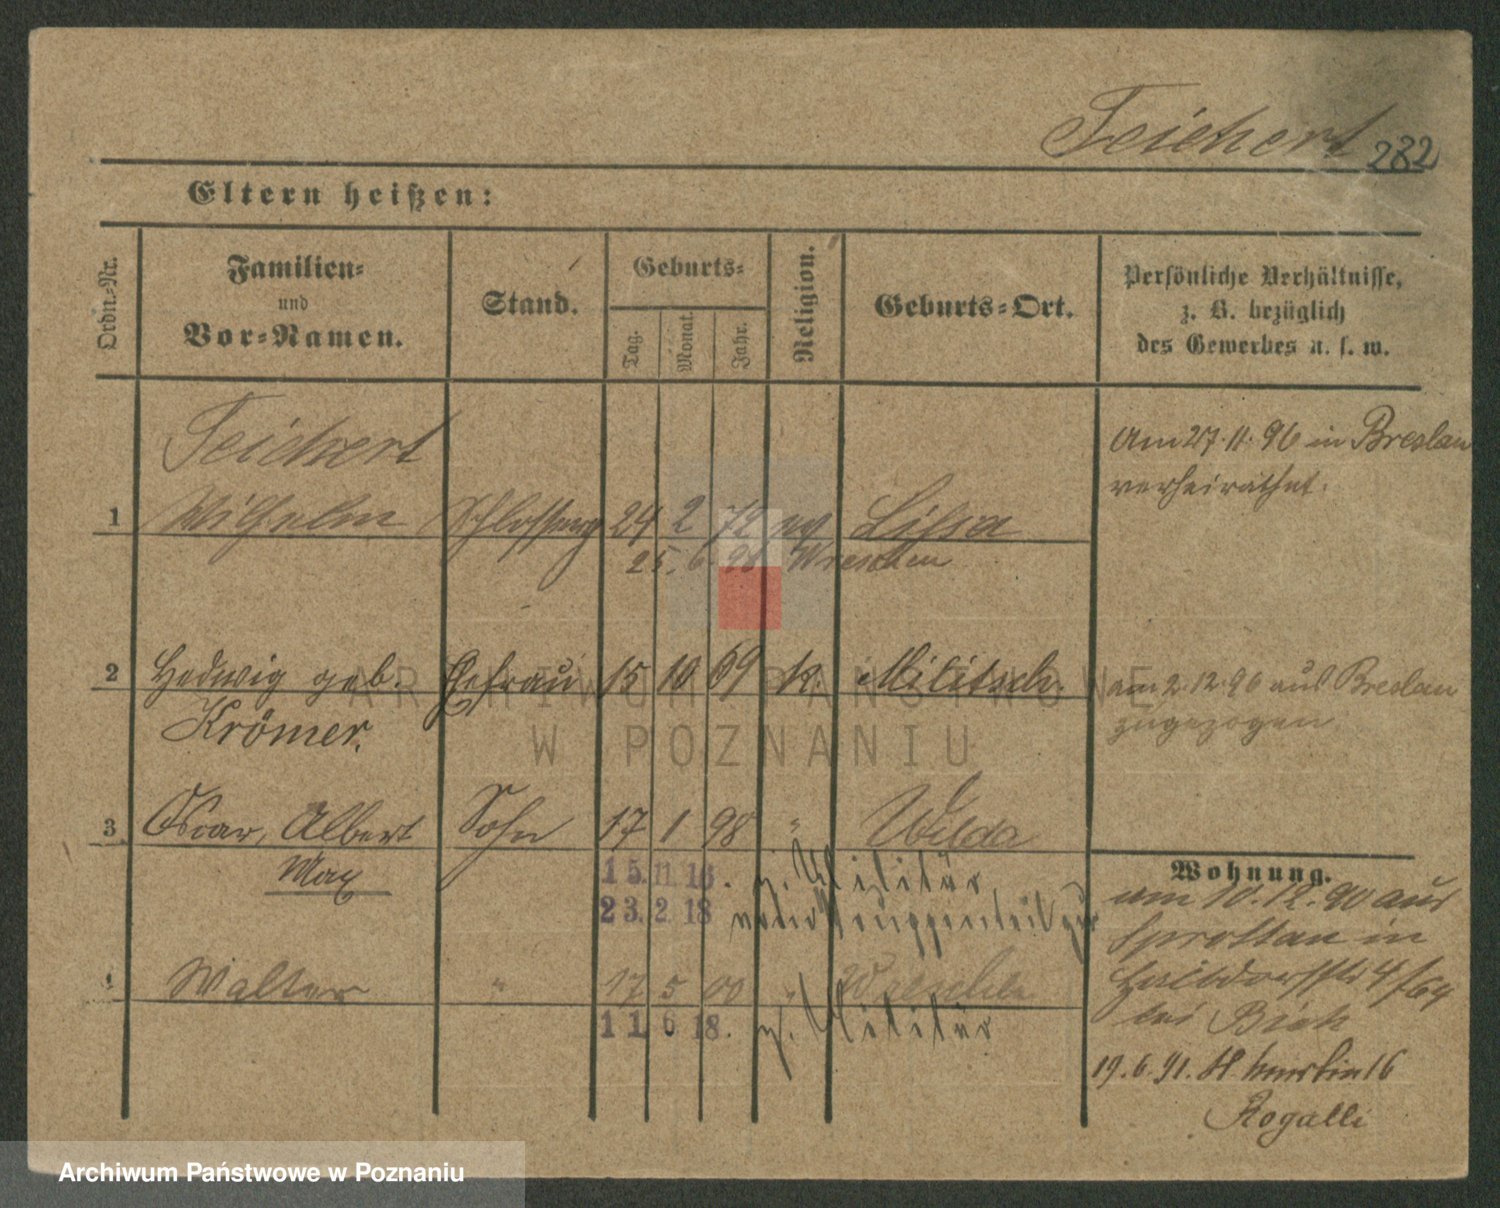 Teichert 282
Eltern heißen:
Ordn.-Nr.
Familien-
und
Vor-Namen.
Stand.
Geburts-
Tag.
Monat.
Jahr.
Religion.
Geburts-Ort.
Persönliche Verhältnisse,
z. B. bezüglich
des Gewerbes u. s. w.
Teichert
1 Wilhelm 24 2 72 Lissa
Am 27.11.96 in Breslau
verheirathet.
25. 6. 98 Wreschen
2 Hedwig geb. Ehefrau 15 10 69 k. Militsch.
Krömer.
am 2.12.96 aus Breslau
zugezogen
3 Oscar, Albert Sohn 17 1 98 " Wilda
Max
15. 11. 16. z. Militär,
23. 2. 18
4 Walter " 17 5 00 " Wreschen
11. 6 18. z. Militär
Wohnung.
am 10.12.90 aus
Sprottau in
4/64
bei
19.6.91. 16
Rogalli
ARCHIWUM PAŃSTWOWE
W POZNANIU
Archiwum Państwowe w Poznaniu